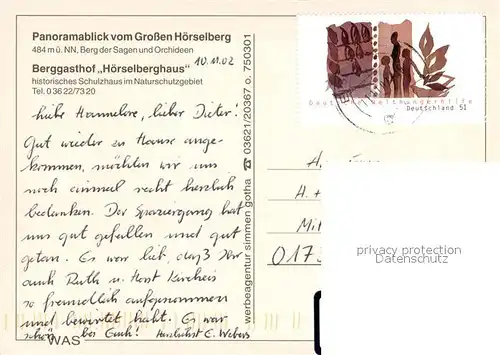 Panoramablick vom Großen Hörselberg
484 m ü. NN, Berg der Sagen und Orchideen
Berggasthof „Hörselberghaus"
historisches Schulzhaus im Naturschutzgebiet
Tel. 0 36 22/73 20
10.11.02
Liebe Hannelore, lieber Dieter!
Gut wieder zu Hause ange-
kommen, möchten wir uns
noch einmal recht herzlich
bedanken. Der Spaziergang hat
uns gut gefallen und gut
getan. Es war lieb, daß Ihr
auch Ruth u. Horst
so freundlich aufgenommen
und bewirtet habt. Es war
schön bei Euch! Herzlichst E. Webers
WAS
werbeagentur simmen gotha ☎ 03621/20367 o. 750301
Deutsche Welthungerhilfe
Deutschland 51
A.
A. +
Mi
0173
privacy protection
Datenschutz